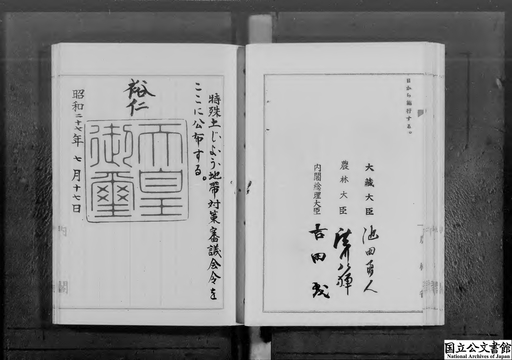 日から施行する。
大藏大臣 池田勇人
農林大臣
内閣総理大臣 吉田茂
特殊土じよう地帶対策審議会令を
ここに公布する。
裕仁
天皇御璽
昭和二十七年 七月十七日
国立公文書館
National Archives of Japan